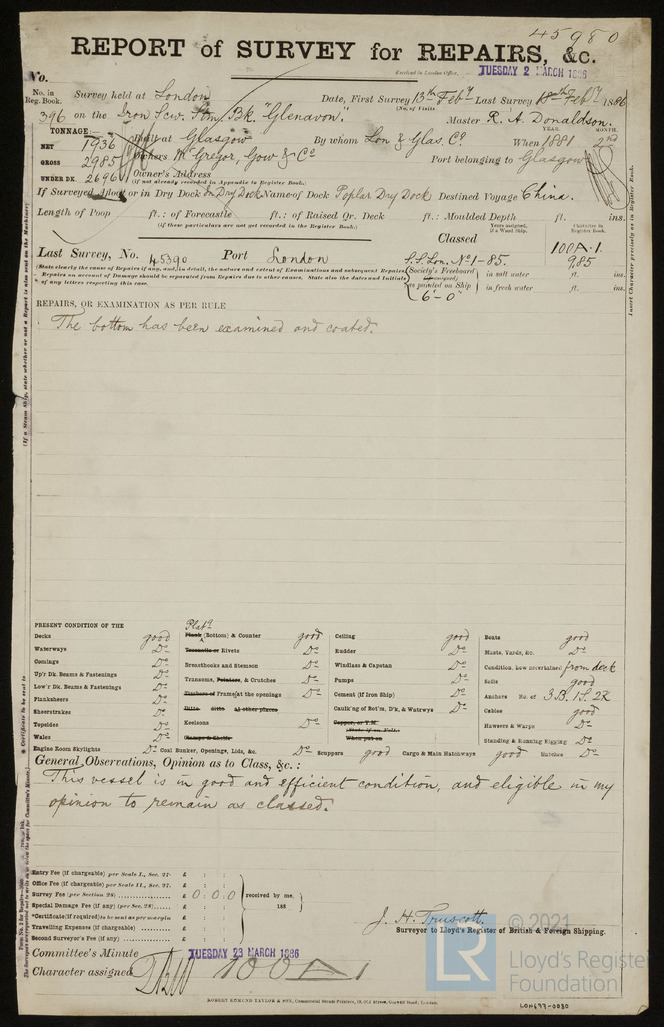 45980
REPORT of SURVEY for REPAIRS, &c.
No.
Received in London Office, TUESDAY 2 MARCH 1886
No. in Reg. Book. Survey held at London Date, First Survey 13th Feby Last Survey 18th Feby 1886
(No. of Visits )
396 on the Iron Scw. Stm Bk. "Glenavon" Master R. A. Donaldson.
TONNAGE:— YEAR. MONTH.
NET 1936 Built at Glasgow By whom Lon & Glas. Co. When 1881
GROSS 2985 Owners McGregor, Gow & Co Port belonging to Glasgow
UNDER DK. 2696 Owner's Address
(if not already recorded in Appendix to Register Book.)
If Surveyed Afloat or in Dry Dock In Dry Dock Name of Dock Poplar Dry Dock Destined Voyage China.
Length of Poop ft.: of Forecastle ft.: of Raised Qr. Deck ft.: Moulded Depth ft. ins.
(if these particulars are not yet recorded in the Register Book.)
Years assigned, if a Woxd Ship. Character in Register Book.
Classed 100A.1.
Last Survey, No. 45390 Port London S.S. Lon. No 1-85. 9,85
(State clearly the cause of Repairs if any, and, in detail, the nature and extent of Examinations and subsequent Repairs.
Repairs on account of Damage should be separated from Repairs due to other causes. State also the dates and Initials
of any letters respecting this case.
Society's Freeboard (if assigned) as painted on Ship in salt water ft. ins.
in fresh water ft. ins.
6'-0"
REPAIRS, OR EXAMINATION AS PER RULE
The bottom has been examined and coated.
PRESENT CONDITION OF THE
Decks good
Waterways Do
Comings Do
Up'r Dk. Beams & Fastenings Do
Low'r Dk. Beams & Fastenings Do
Planksheers Do
Sheerstrakes Do
Topsides Do
Wales Do
Engine Room Skylights Do
Platg
Plank (Bottom) & Counter good
Treenails or Rivets Do
Breasthooks and Stemson Do
Transoms, Pointers, & Crutches Do
Timbers of Frame at the openings Do
Ditto ditto at other places
Keelsons Do
Clamps & Shelfs
Coal Bunker, Openings, Lids, &c. Do
Ceiling good
Rudder Do
Windlass & Capstan Do
Pumps Do
Cement (if Iron Ship) Do
Caulk'g of Bot'm, D'k, & Watrwys Do
Copper, or Y.M.
(State if on Felt.)
When put on
Scuppers good Cargo & Main Hatchways good Hatches Do
Boats good
Masts, Yards, &c. Do
Condition, how ascertained from deck
Sails good
Anchors No. of 3B. 1S. 2K
Cables good
Hawsers & Warps Do
Standing & Running Rigging Do
General Observations, Opinion as to Class, &c.:
This vessel is in good and efficient condition, and eligible in my
opinion to remain as classed.
Entry Fee (if chargeable) per Scale I., Sec. 27. £ : :
Office Fee (if chargeable) per Scale II., Sec. 27. £ : :
Survey Fee (per Section 28) £ 0 : 0 : 0 received by me,
Special Damage Fee (if any) (per Sec. 28) £ : : 188
*Certificate (if required) to be sent as per margin £ : :
Travelling Expenses (if chargeable) £ : :
Second Surveyor's Fee (if any) £ : :
J. H. Truscott.
Surveyor to Lloyd's Register of British & Foreign Shipping.
Committee's Minute TUESDAY 23 MARCH 1886
Character assigned 100A1
ROBERT EDMUND TAYLOR & SON, Commercial Steam Printers, 19, Old Street, Goswell Road, London.
© 2021
LR
Lloyd's Register
Foundation
LON697-0030
(If a Steam Ship, state whether or not a Report is also sent on the Machinery
Insert Character precisely as in Register Book.
* Certificate to be sent to